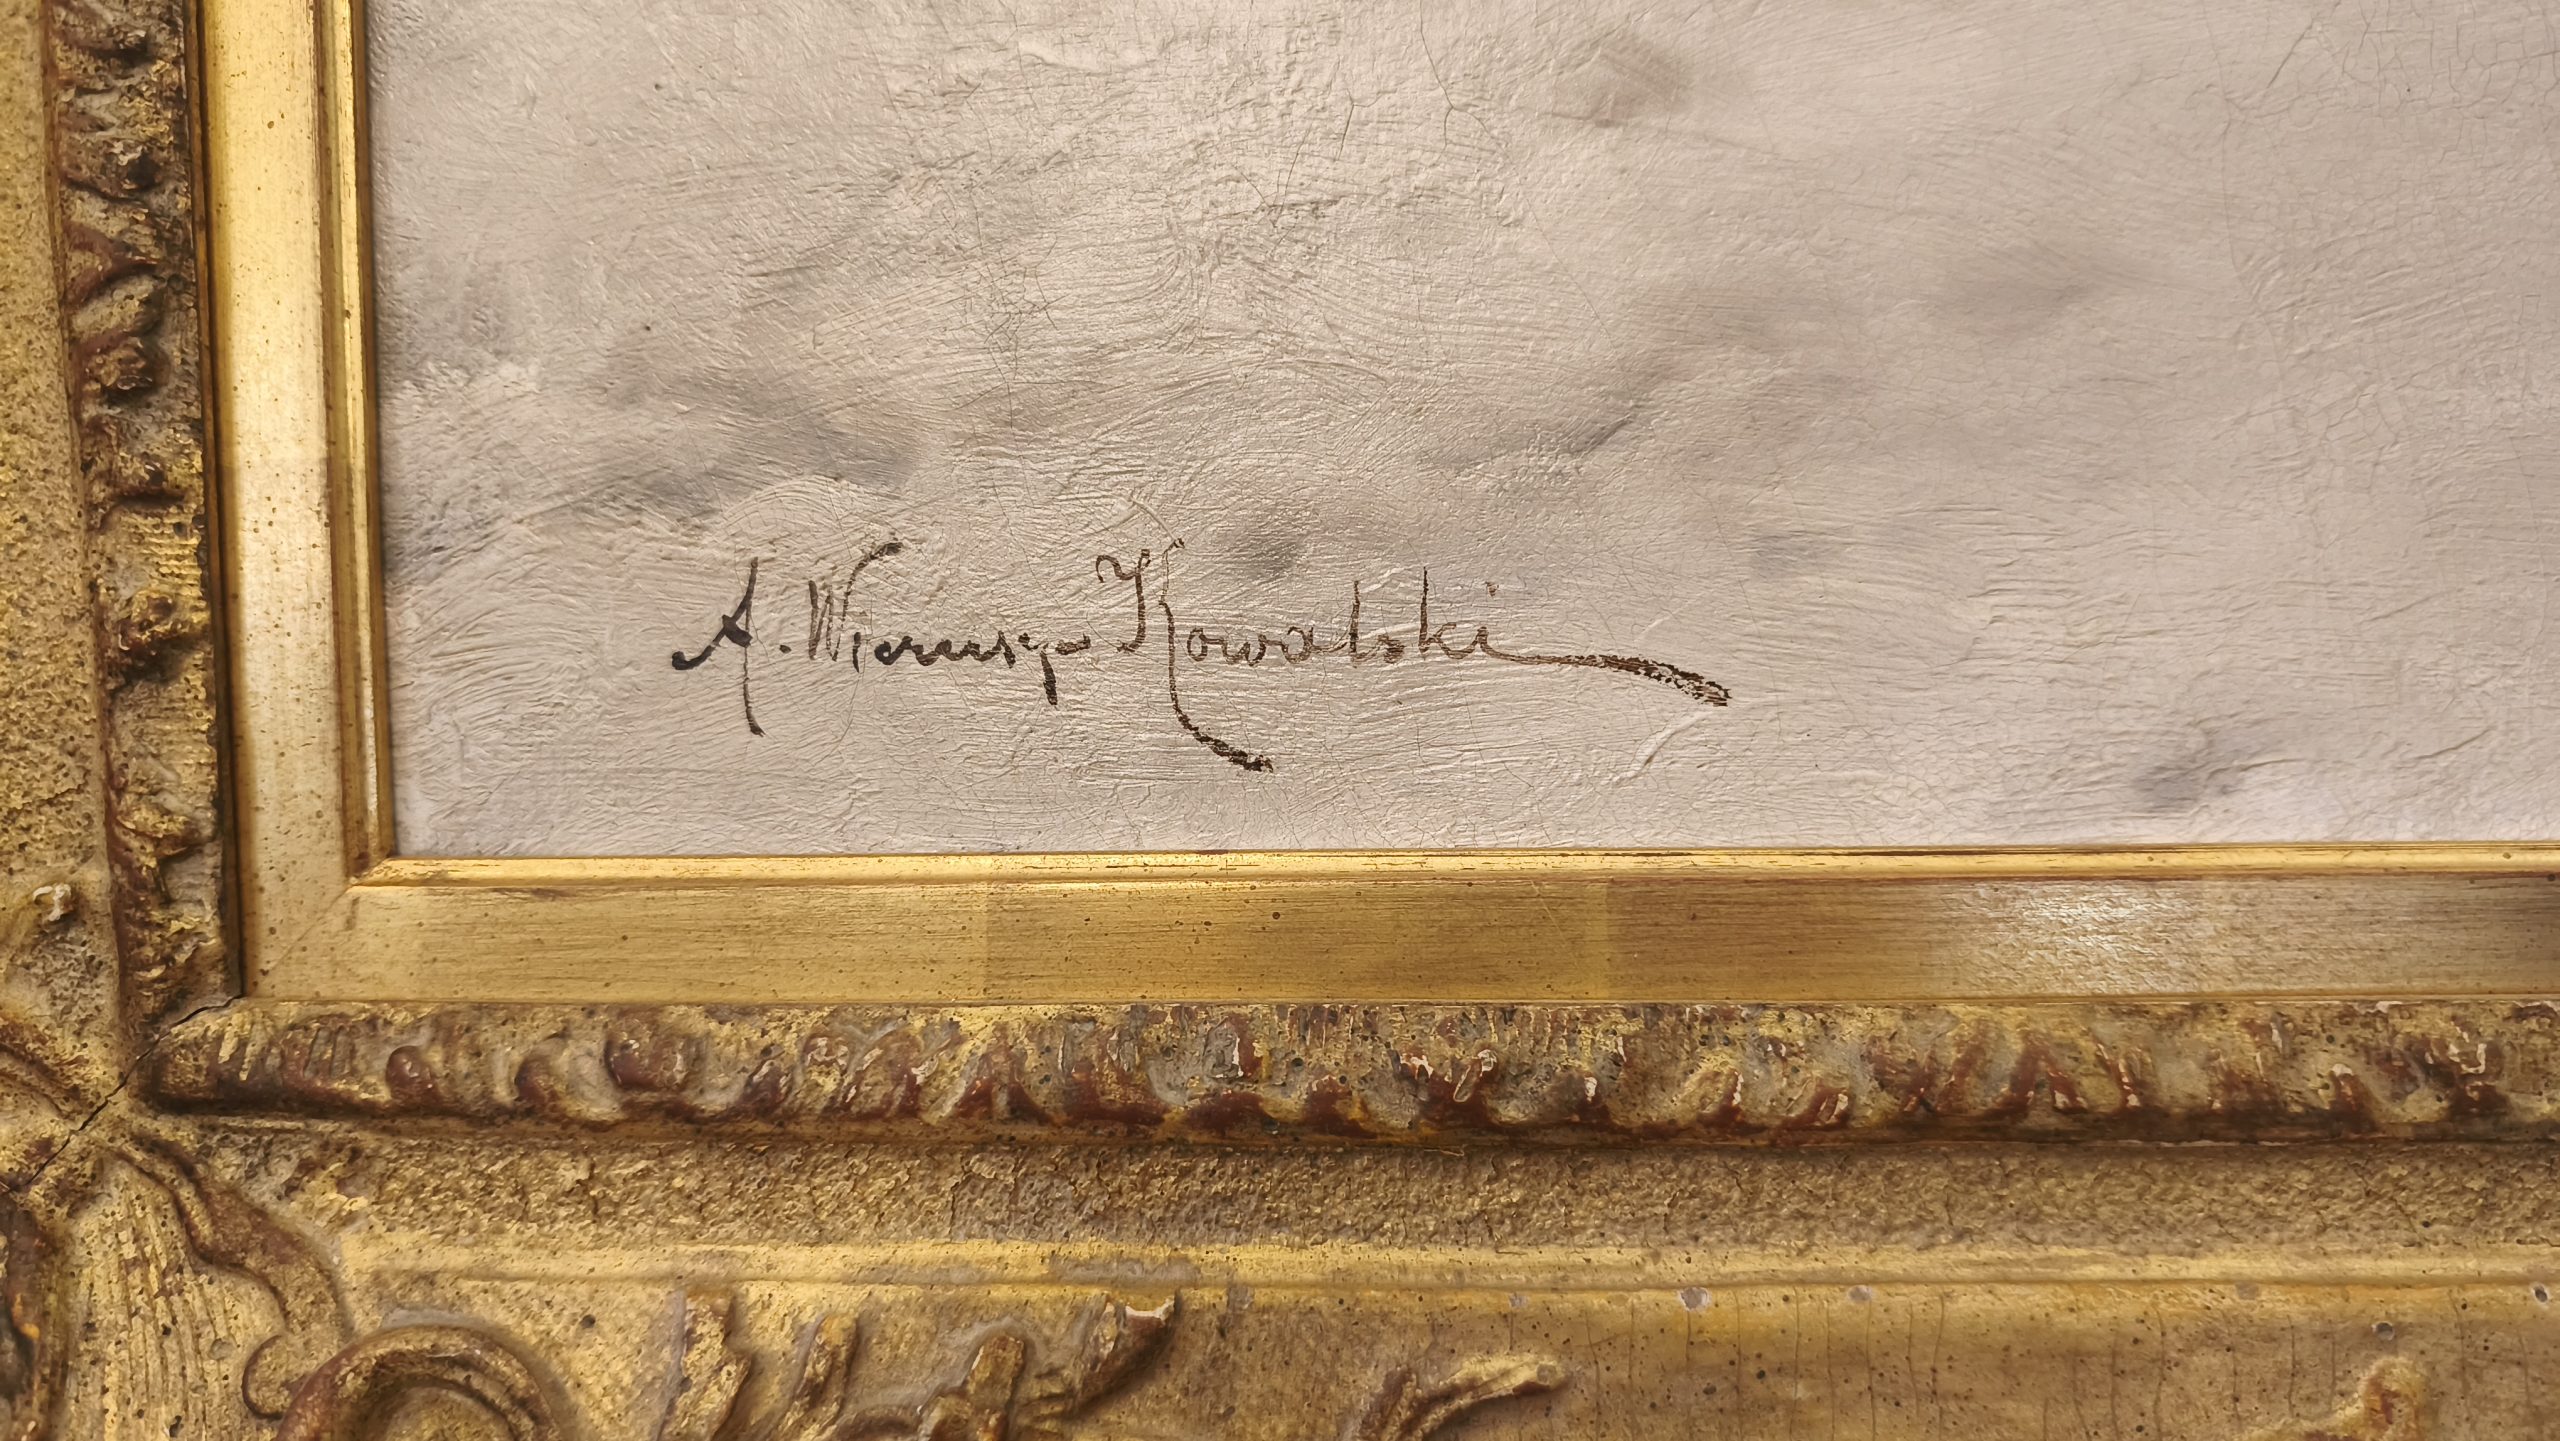 A. Wierusz-Kowalski